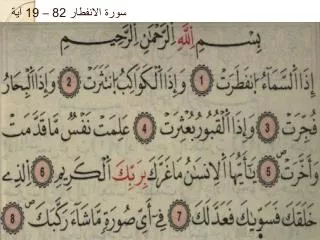 سورة الانفطار 82 – 19 آية
بِسْمِ اللَّهِ الرَّحْمَٰنِ الرَّحِيمِ
إِذَا السَّمَاءُ انفَطَرَتْ 1 وَإِذَا الْكَوَاكِبُ انتَثَرَتْ 2 وَإِذَا الْبِحَارُ
فُجِّرَتْ 3 وَإِذَا الْقُبُورُ بُعْثِرَتْ 4 عَلِمَتْ نَفْسٌ مَّا قَدَّمَتْ
وَأَخَّرَتْ 5 يَٰأَيُّهَا الْإِنسَٰنُ مَا غَرَّكَ بِرَبِّكَ الْكَرِيمِ 6 الَّذِي
خَلَقَكَ فَسَوَّىٰكَ فَعَدَلَكَ 7 فِي أَيِّ صُورَةٍ مَّا شَاءَ رَكَّبَكَ 8